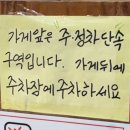 가게앞은 주·정차단속
구역입니다. 가게뒤에
주차장에 주차하세요